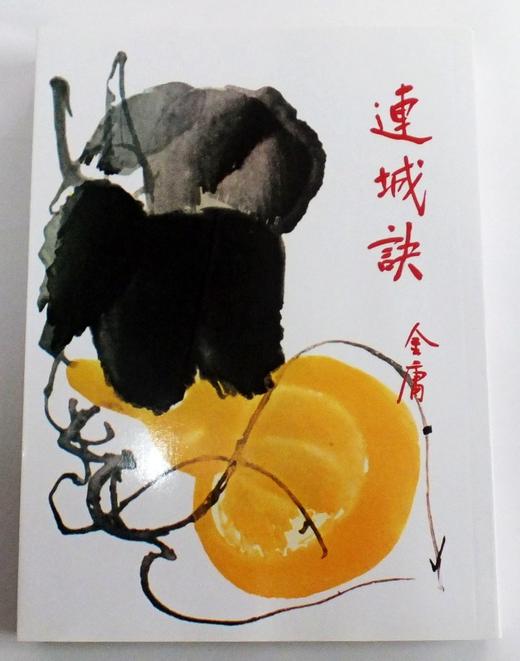 連城訣
金庸